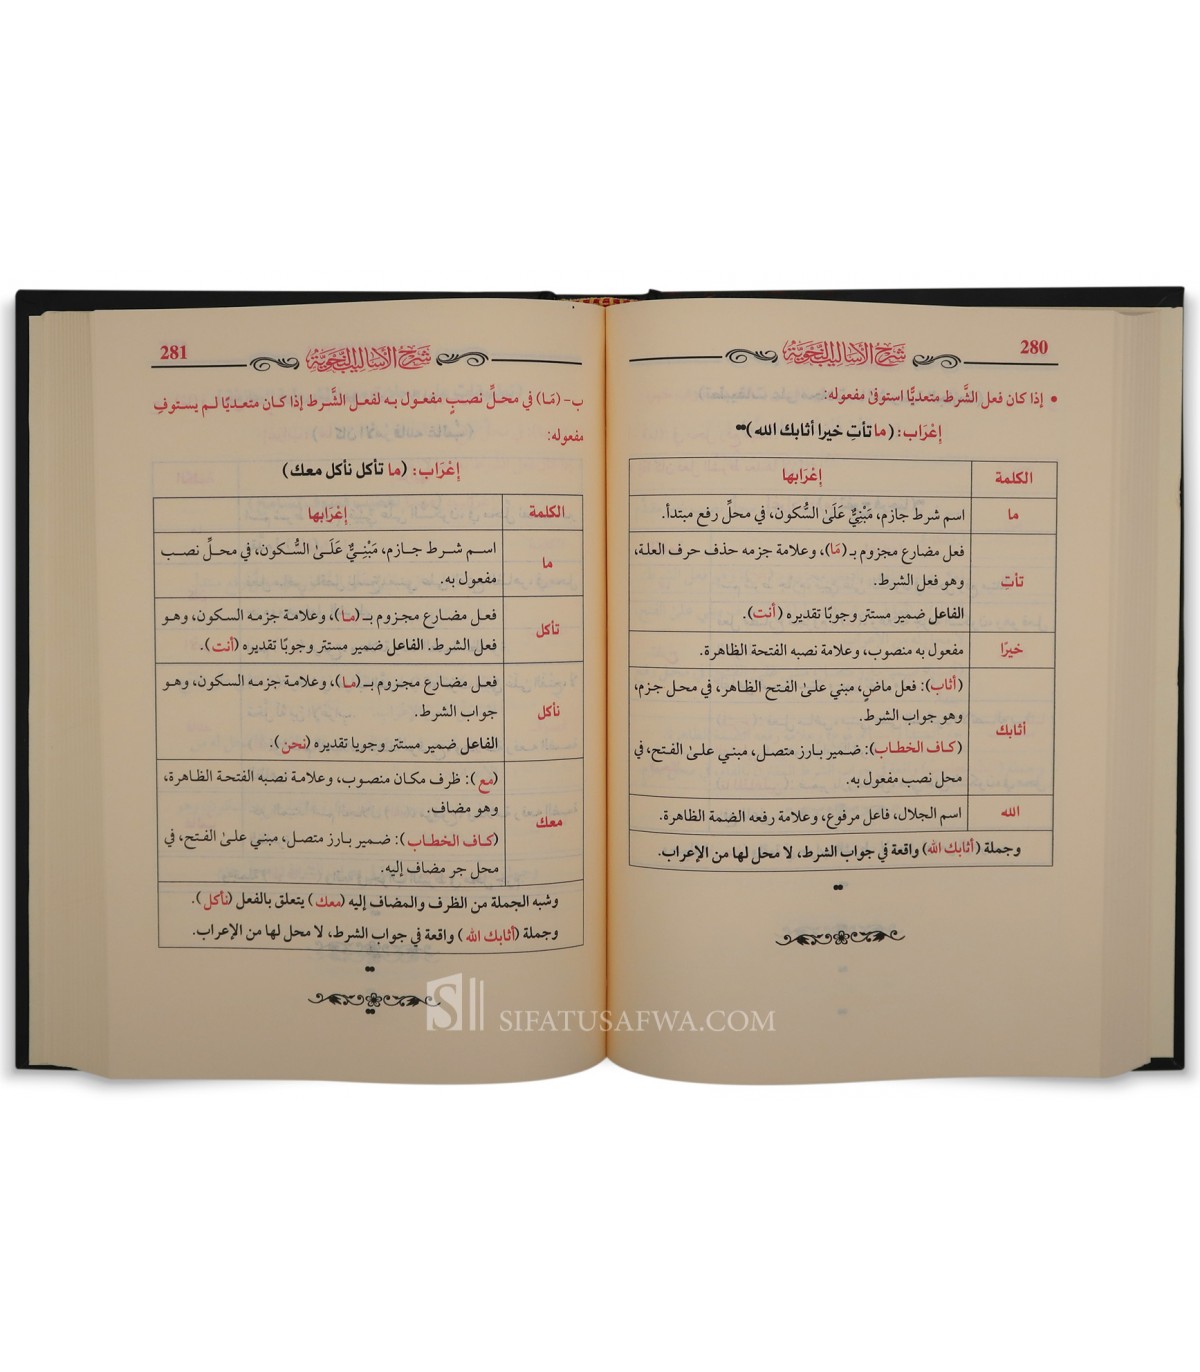 280
شرح الأساليب النحوية
• إذا كان فعل الشَّرط متعديًّا استوفىٰ مفعوله:
إعْرَاب: (ما تأتِ خيرا أثابك الله)
الكلمة إعْرَابها
ما اسم شرط جازم، مَبْنِيٌّ عَلَىٰ السُّكون، في محلِّ رفع مبتدأ.
فعل مضارع مجزوم بـ(مَا)، وعلامة جزمه حذف حرف العلة،
تأتِ وهو فعل الشرط.
الفاعل ضمير مستتر وجوبًا تقديره (أنت).
خيرًا مفعول به منصوب، وعلامة نصبه الفتحة الظاهرة.
(أثاب): فعل ماضٍ، مبني علىٰ الفتح الظاهر، في محل جزم،
وهو جواب الشرط.
أثابك
(كـاف الخطـاب): ضـمير بـارز متصـل، مبنـي علىٰ الفتح، في
محل نصب مفعول به.
الله اسم الجلال، فاعل مرفوع، وعلامة رفعه الضمة الظاهرة.
وجملة (أثابك الله) واقعة في جواب الشرط، لا محل لها من الإعراب.
281
شرح الأساليب النحوية
ب- (مَا) في محـلِّ نصـبٍ مفعـول بـه لفعـل الشَّـرط إذا كـان متعديًا لـم يستوفِ
مفعوله:
إعْرَاب: (ما تأكل نأكل معك)
الكلمة إعْرَابها
اسـم شـرط جـازم، مَبْنِـيٌّ عَلَـىٰ السُّـكون، في محـلِّ نصـب
ما
مفعول به.
فعـل مضـارع مجـزوم بـ(مـا)، وعلامـة جزمـه السكون، وهـو
تأكل
فعل الشرط. الفاعل ضمير مستتر وجوبًا تقديره (أنت).
فعـل مضـارع مجـزوم بـ(مـا)، وعلامـة جزمـه السكون، وهـو
نأكل جواب الشرط.
الفاعل ضمير مستتر وجوبا تقديره (نحن).
(مع): ظرف مكان منصوب، وعلامة نصبه الفتحة الظاهرة،
وهو مضاف.
معك
(كـاف الخطـاب): ضـمير بـارز متصـل، مبنـي علىٰ الفتـح، في
محل جر مضاف إليه.
وشبه الجملة من الظرف والمضاف إليه (معك) يتعلق بالفعل (نأكل).
وجملة (أثابك الله) واقعة في جواب الشرط، لا محل لها من الإعراب.
SIFATUSAFWA.COM